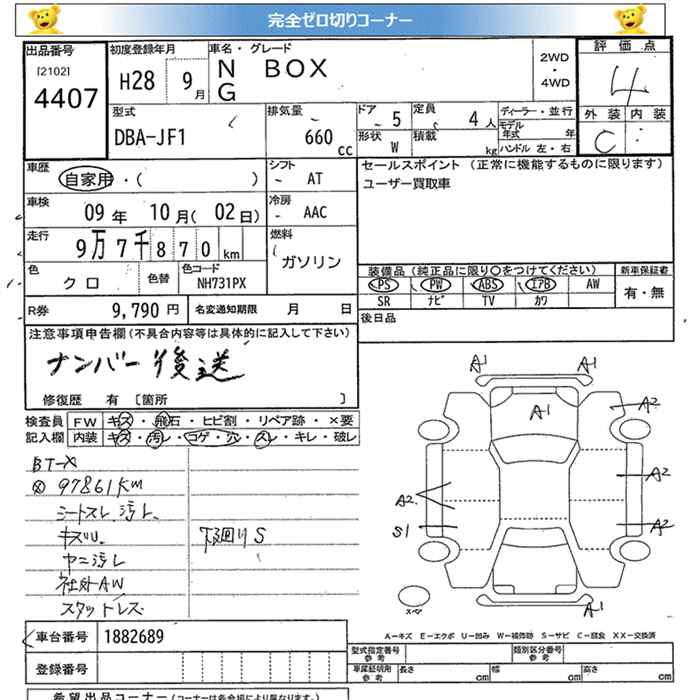 完全ゼロ切りコーナー
出品番号
[2102]
4407
初度登録年月
H28 9月
車名・グレード
N BOX
G
2WD
・
4WD
評価点
4
外装 内装
C
型式
DBA-JF1
排気量
660 cc
ドア 5
定員 4人
形状 W
積載 kg
ディーラー・並行
モデル年式 年
ハンドル 左・右
車歴
自家用・( )
シフト
AT
セールスポイント (正常に機能するものに限ります)
ユーザー買取車
車検
09年 10月(02日)
冷房
AAC
走行
9万7千870km
燃料
ガソリン
色
クロ
色替
色コード
NH731PX
装備品(純正品に限り○をつけてください)
PS PW ABS エアB AW
SR ナビ TV カワ
新車保証書
有・無
R券 9,790円
名変通知期限 月 日
後日品
注意事項申告欄(不具合内容等は具体的に記入して下さい)
ナンバー後送
修復歴 有〔箇所 〕
検査員
記入欄
FW キズ・飛石・ヒビ割・リペア跡・×要
内装 キズ・汚レ・コゲ・穴・スレ・キレ・破レ
BT-X
⊗ 97861KM
シートスレ、汚レ
キズU
ヤニ汚レ
社外AW
スタットレス
下廻りS
A1 A1
A1
A2
A2
A2
A2
S1
A1
スペア
A-キズ E-エクボ U-凹み W-補修跡 S-サビ C-腐食 XX-交換済
車台番号 1882689
登録番号
型式指定番号
参考
類別区分番号
参考
車庫証明用
参考
長さ cm 幅 cm 高さ cm
希望出品コーナー